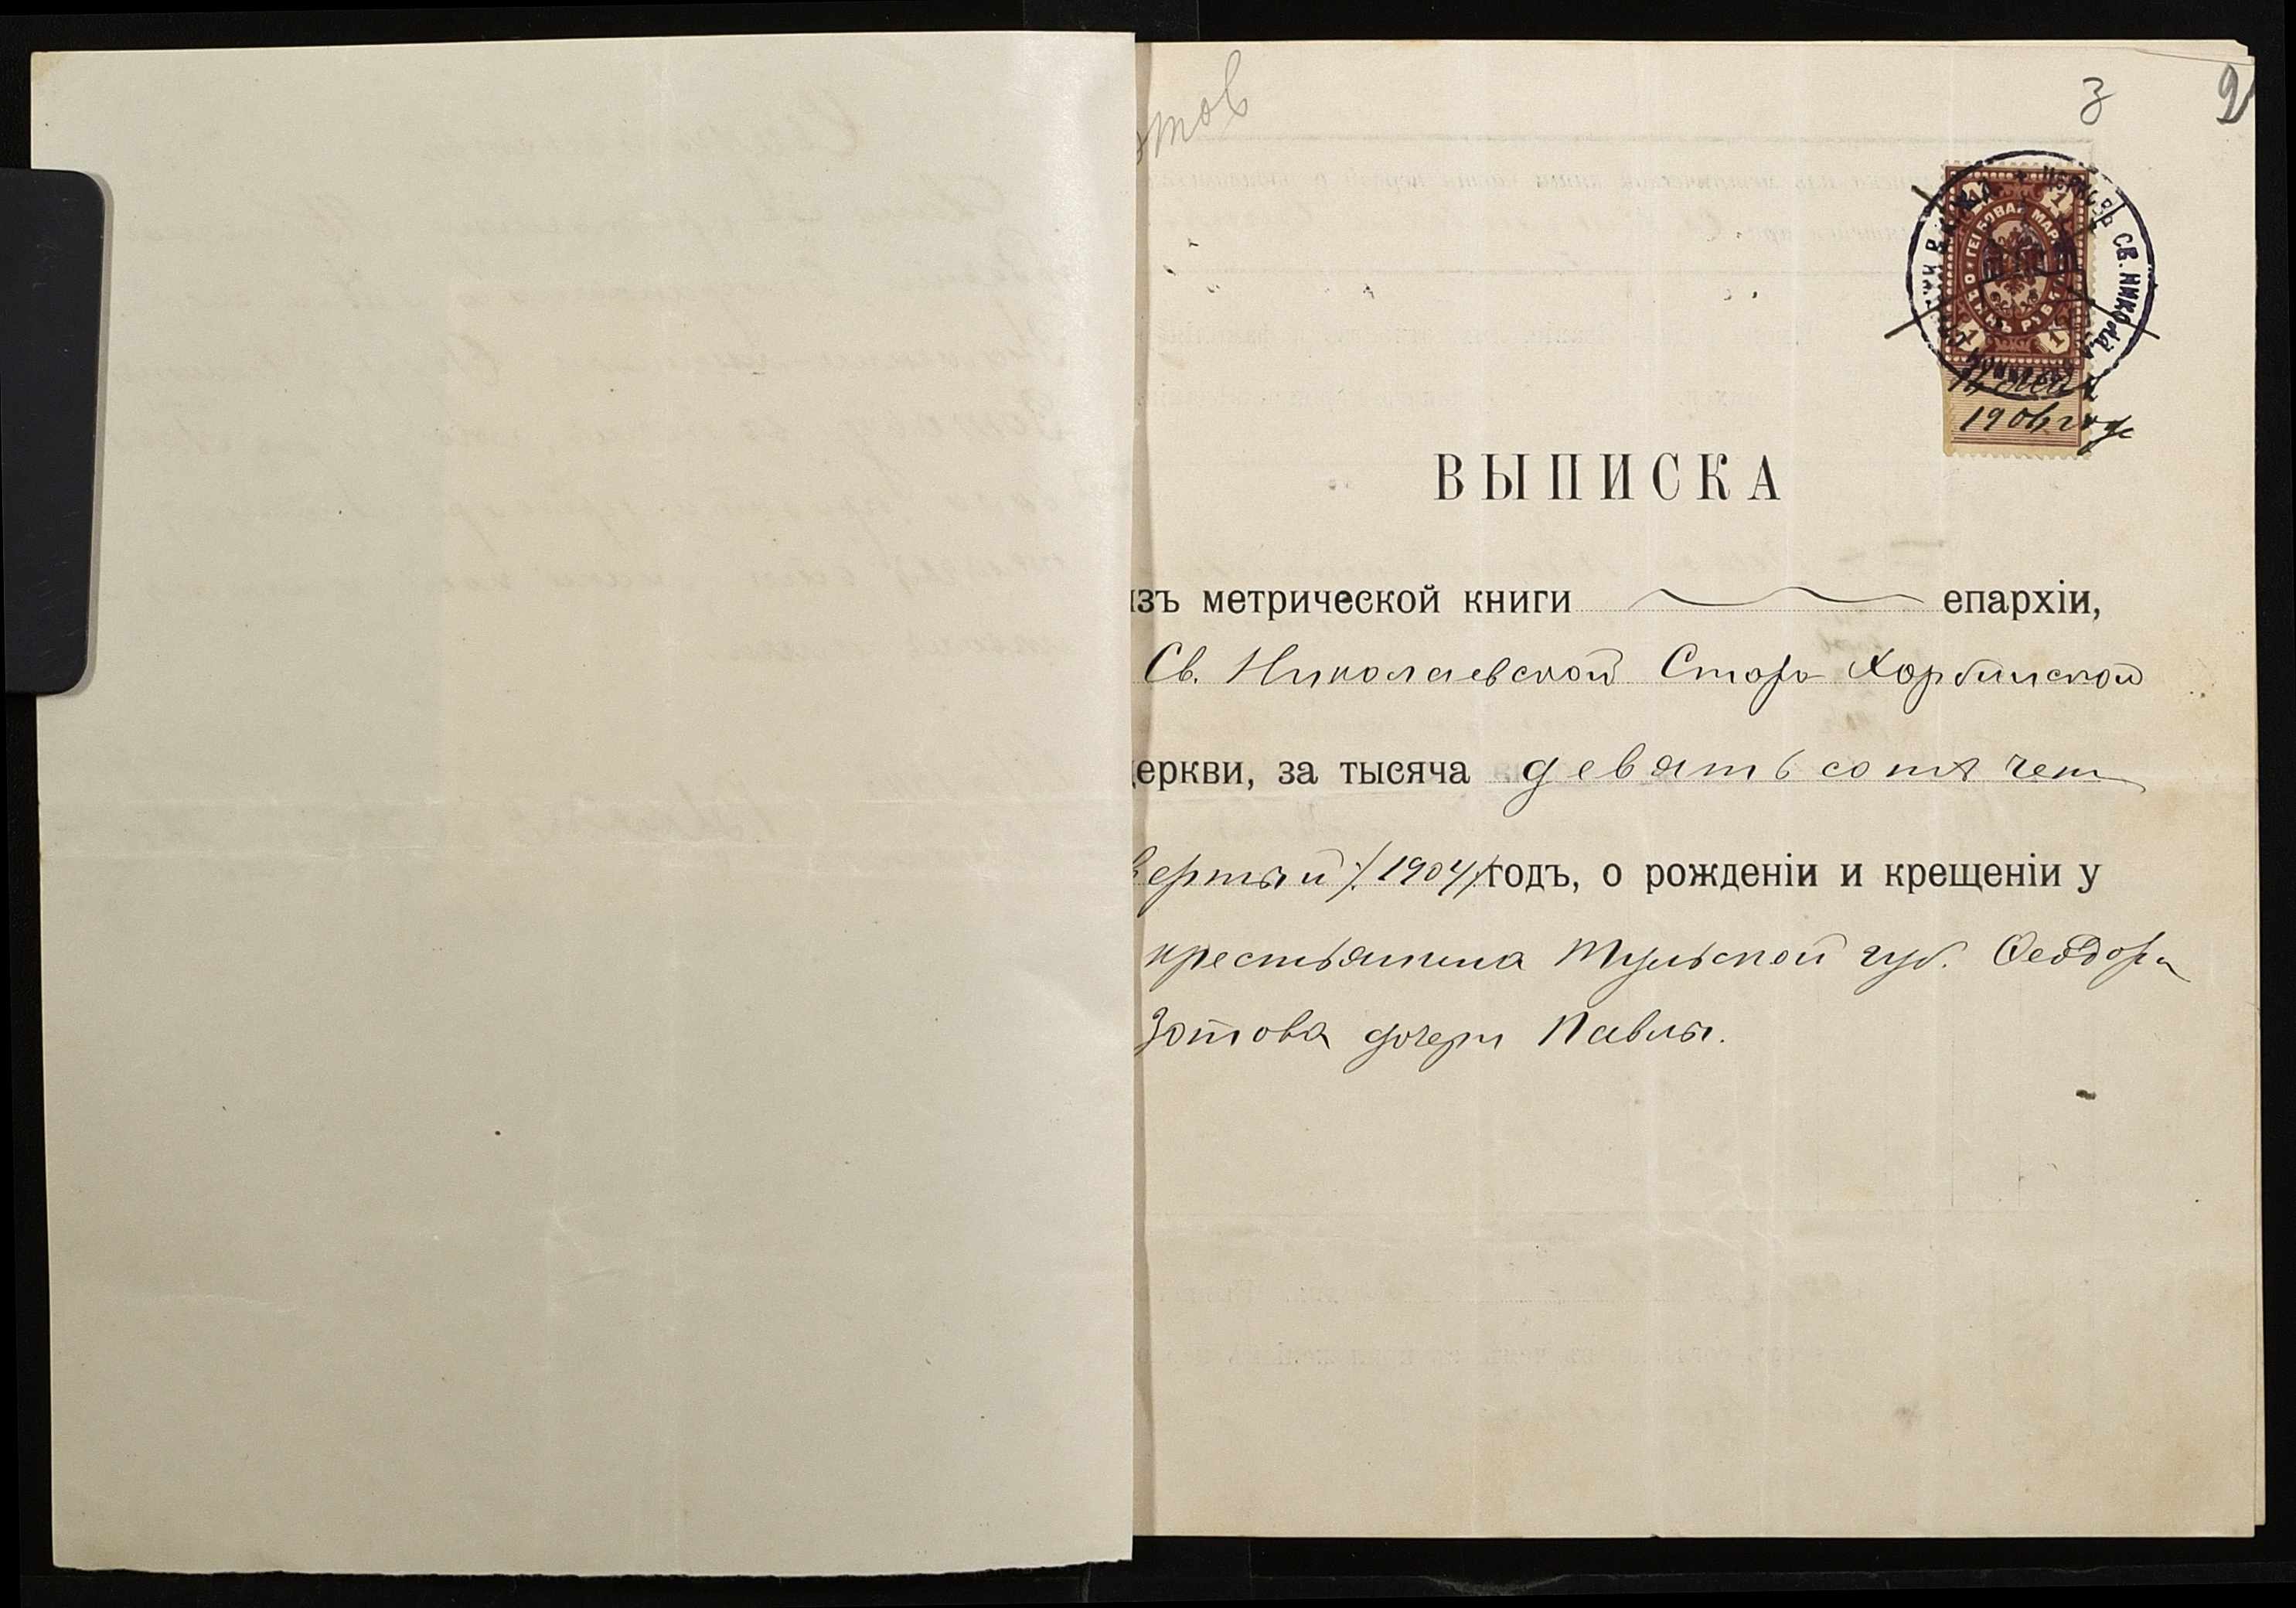 отов
3 2
ЦЕРКОВЬ СВ. НИКОЛАЯ
ГЕРБОВАЯ МАРКА
1 1 1 1
1906 года
ВЫПИСКА
изъ метрической книги епархіи,
Св. Николаевской Старо Харбинской
церкви, за тысяча девятьсотъ чет
вертый /1904/ годъ, о рожденіи и крещеніи у
крестьянина Тульской губ. Ѳеодора
Зотова дочери Павлы.